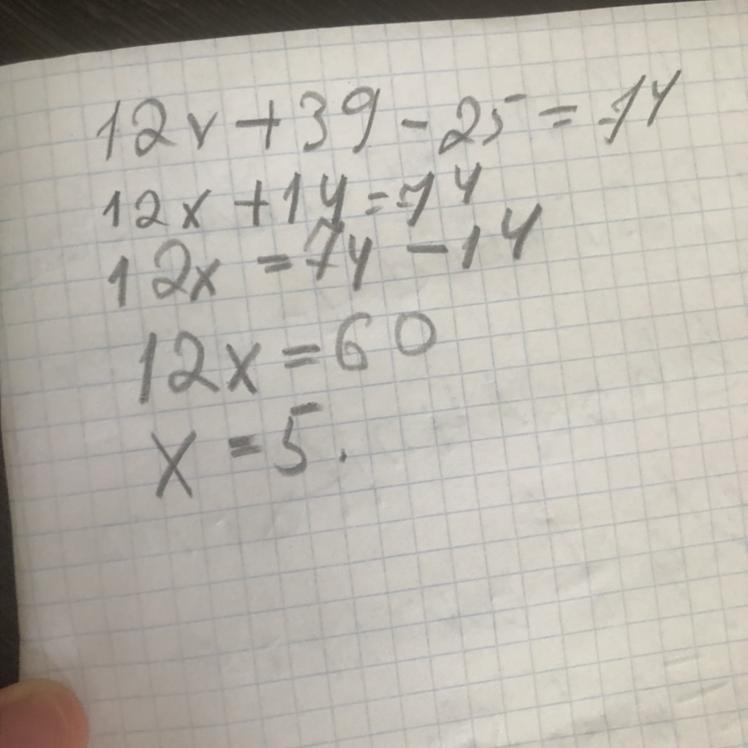 12x+39-25=74
12x+14=74
12x=74-14
12x=60
x=5.